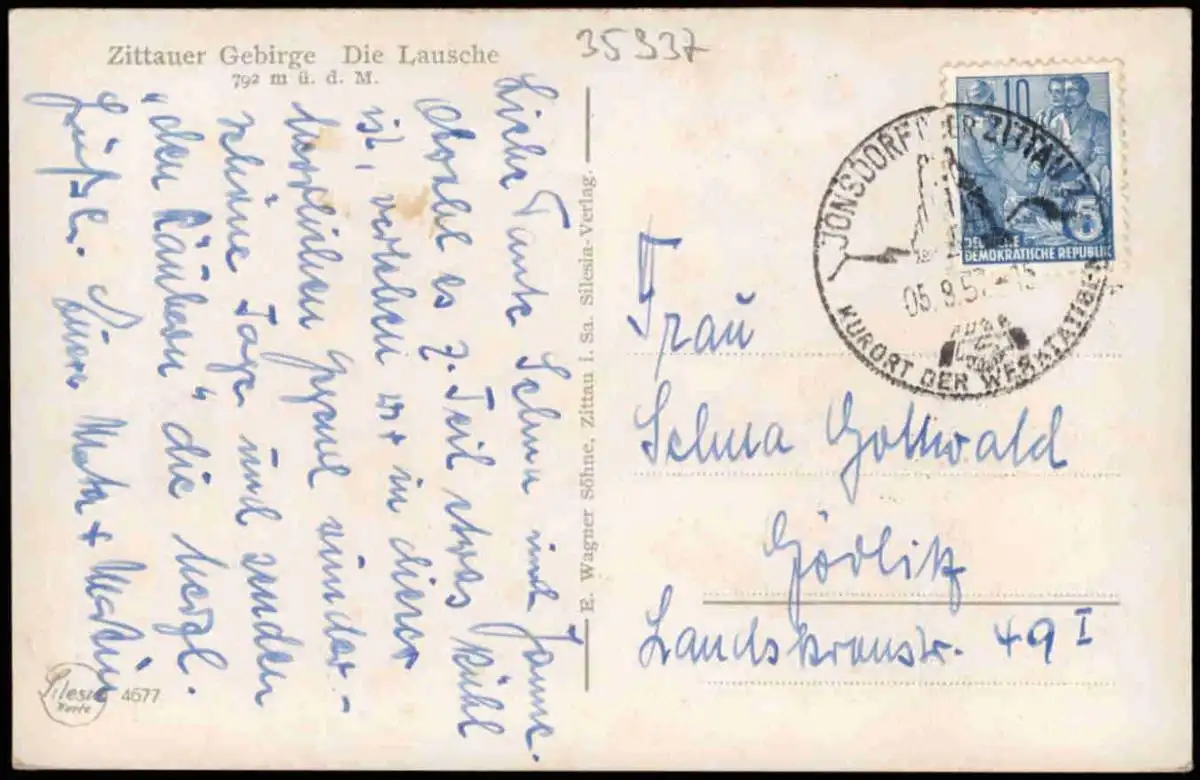 Zittauer Gebirge Die Lausche
792 m ü. d. M.
35937
Liebe Tante Selma und Hanne.
Obwohl es z. Teil etwas kühl
ist, verleben wir in dieser
herrlichen Gegend wunder-
schöne Tage und senden
"den Räubern" die herzl.
Grüße. Eure Meta + Martin
Silesia
Karte
4677
E. Wagner Söhne, Zittau i. Sa. Silesia-Verlag.
10
5
DEUTSCHE
DEMOKRATISCHE REPUBLIK
JONSDORF ÜBER ZITTAU 2
05.9.57.-15
KURORT DER WERKTÄTIGEN
Frau
Selma Gottwald
Görlitz
Landskronstr. 49 I